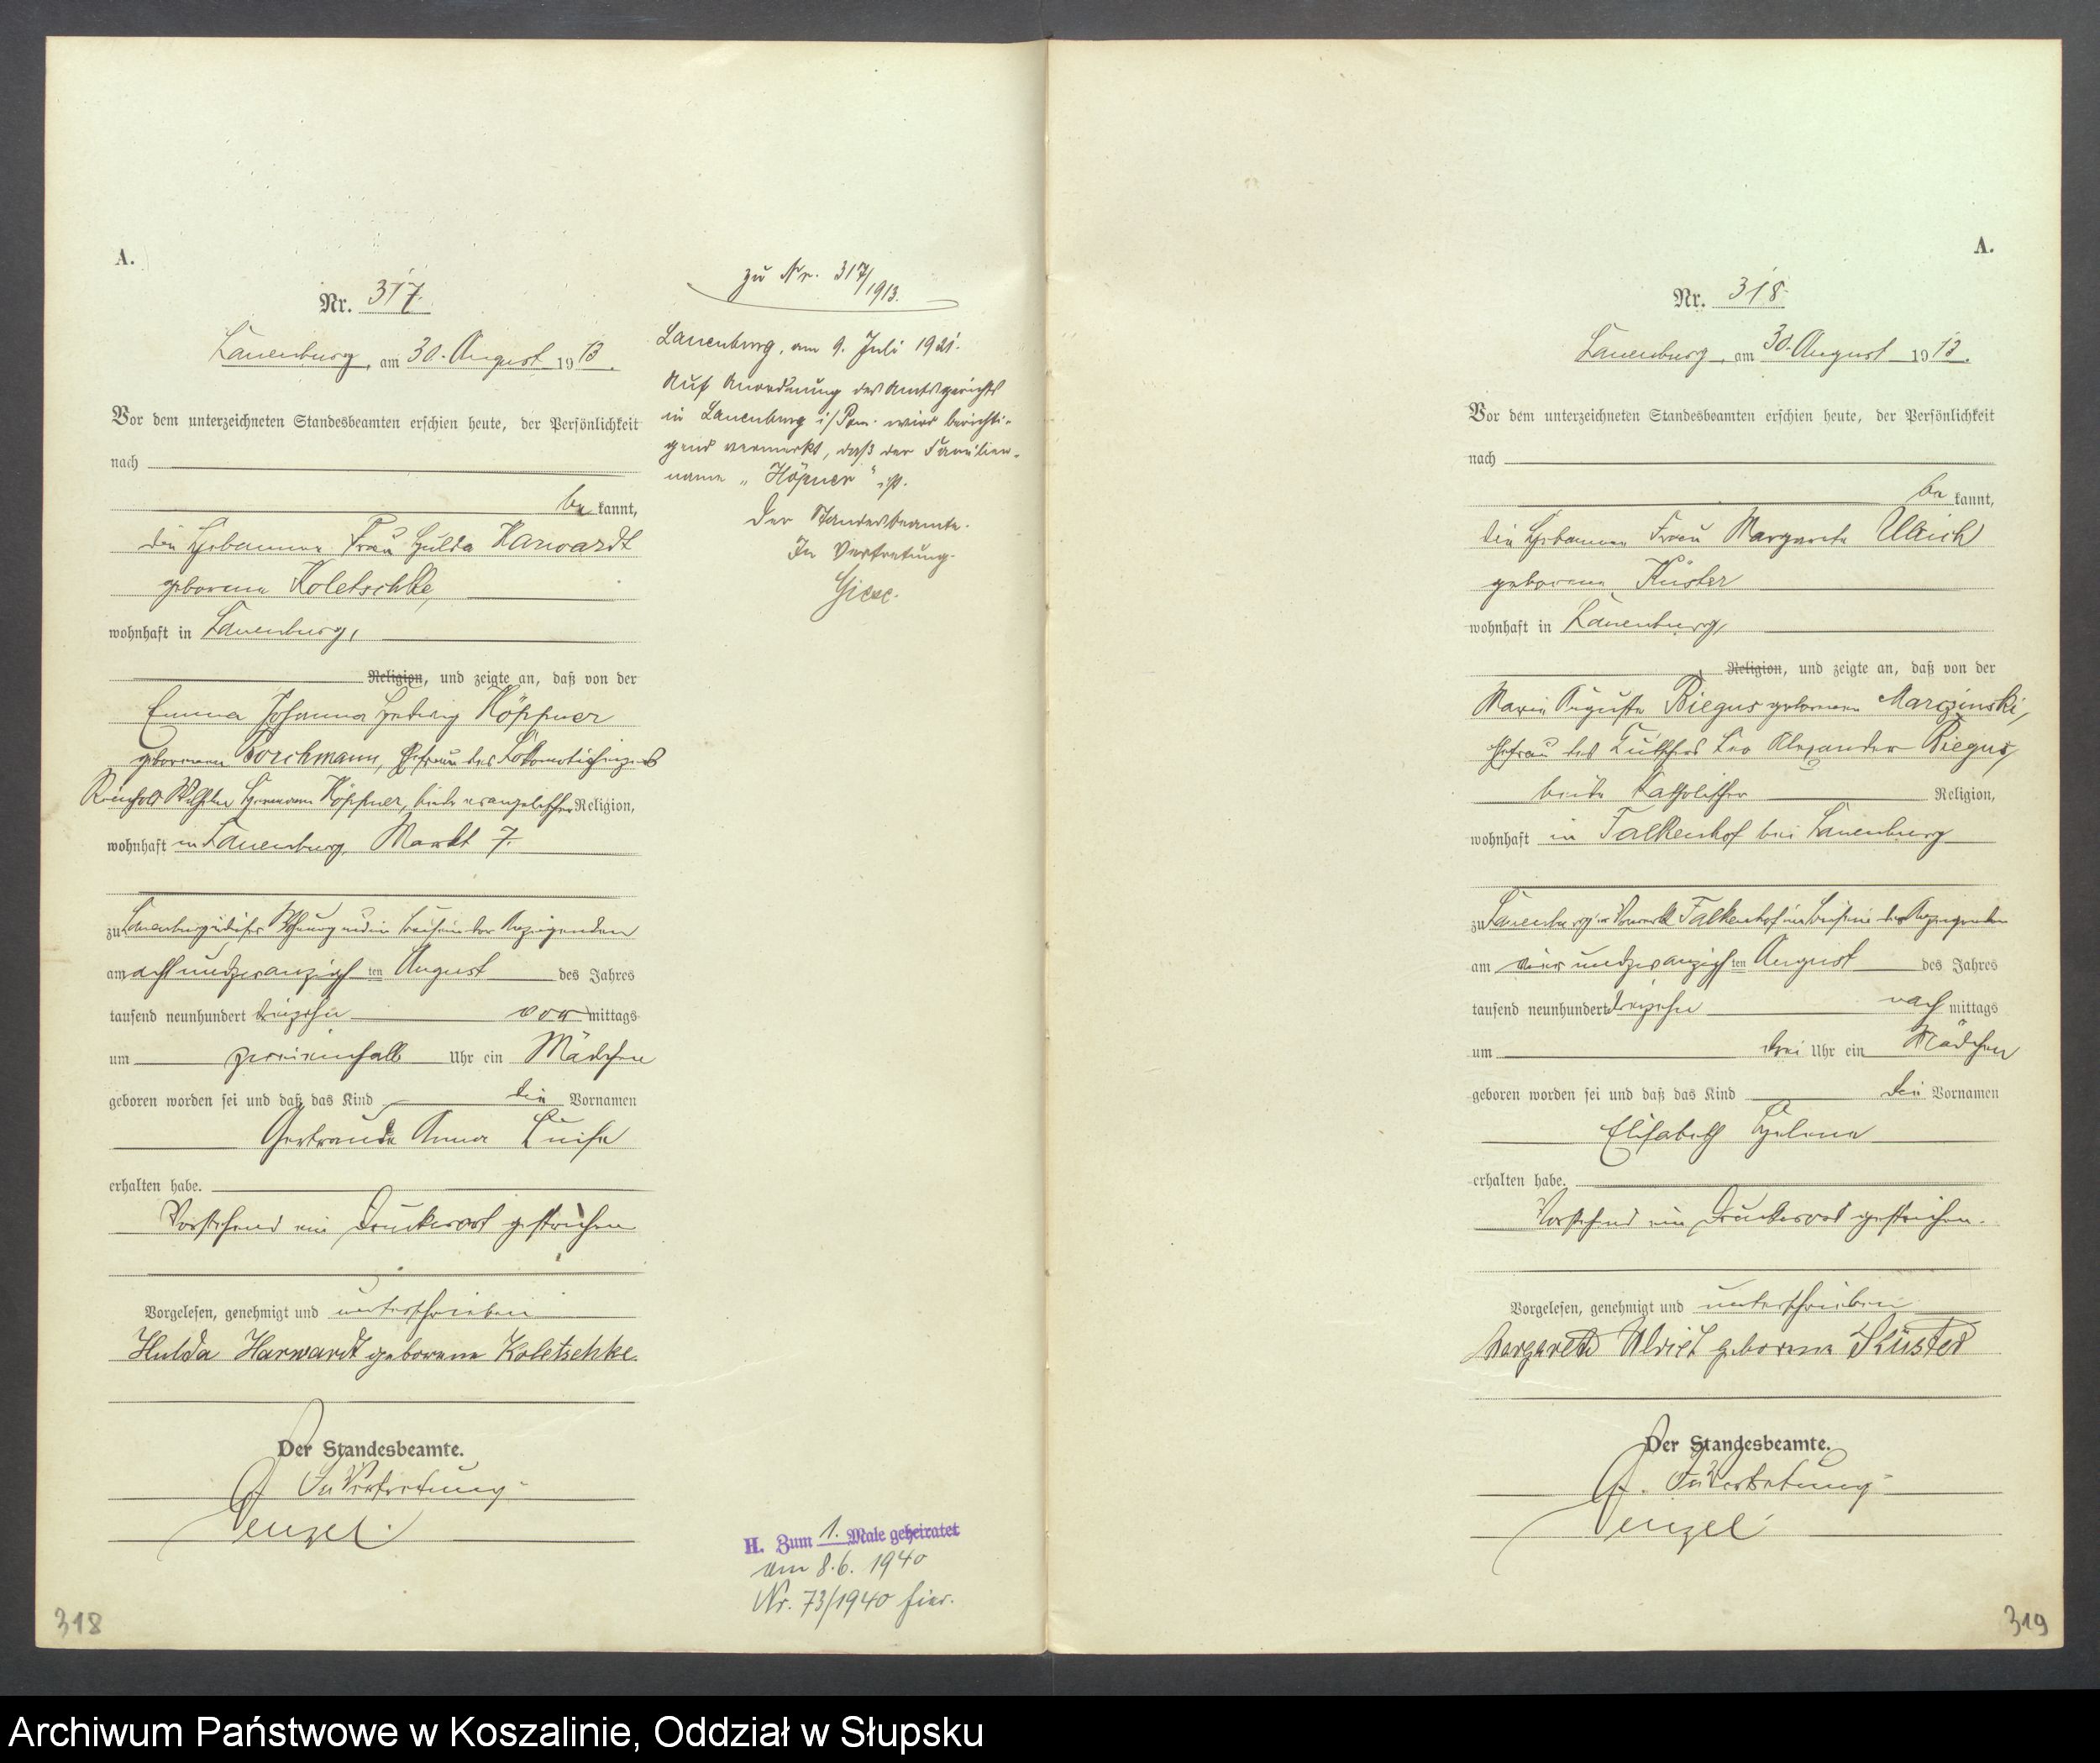 A.
Nr. 317.
Lauenburg, am 30. August 1913.
Vor dem unterzeichneten Standesbeamten erschien heute, der Persönlichkeit
nach
be kannt,
die Hebamme Frau Hulda Harwardt
geborene Koletschke,
wohnhaft in Lauenburg,
Religion, und zeigte an, daß von der
Emma Johanna Hedwig Höppner
geborenen Borchmann, Ehefrau des Lokomotivheizers
Reinhold Wilhelm Hermann Höppner, beide evangelischer Religion,
wohnhaft in Lauenburg, Markt 7.
zu Lauenburg in dieser Wohnung und in Beisein der Anzeigenden
am acht und zwanzigsten August des Jahres
tausend neunhundert dreizehn vor mittags
um zweieinhalb Uhr ein Mädchen
geboren worden sei und daß das Kind die Vornamen
Gertraude Anna Luise
erhalten habe.
Vorstehend ein Druckwort gestrichen
Vorgelesen, genehmigt und unterschrieben
Hulda Harwardt geborene Koletschke.
Der Standesbeamte.
In Vertretung.
Wenzel.
318
zu Nr. 317/1913.
Lauenburg, am 9. Juli 1921.
Auf Anordnung des Amtsgerichts
in Lauenburg i/Pom. wird berichti-
gend vermerkt, daß der Familien-
name „Höpner" ist.
Der Standesbeamte.
In Vertretung.
Giese.
H. Zum 1. Male geheiratet
am 8.6. 1940
Nr. 73/1940 hier.
A.
Nr. 318.
Lauenburg, am 30. August 1913.
Vor dem unterzeichneten Standesbeamten erschien heute, der Persönlichkeit
nach
be kannt,
die Hebamme Frau Margarete Ulrich
geborene Küster
wohnhaft in Lauenburg,
Religion, und zeigte an, daß von der
Marie Auguste Biegus geborenen Marczinski,
Ehefrau des Kutschers Leo Alexander Biegus,
beide katholischer Religion,
wohnhaft in Falkenhof bei Lauenburg
zu Lauenburg Vorwerk Falkenhof im Beisein der Anzeigenden
am vier und zwanzigsten August des Jahres
tausend neunhundert dreizehn nach mittags
um drei Uhr ein Mädchen
geboren worden sei und daß das Kind die Vornamen
Elisabeth Helene
erhalten habe.
Vorstehend ein Druckwort gestrichen.
Vorgelesen, genehmigt und unterschrieben
Margarete Ulrich geborene Küster
Der Standesbeamte.
In Vertretung
Wenzel
319
Archiwum Państwowe w Koszalinie, Oddział w Słupsku